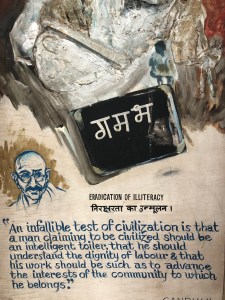 गमभ
ERADICATION OF ILLITERACY
निरक्षरता का उन्मूलन।
"An infallible test of civilization is that
a man claiming to be civilized should be
an intelligent toiler, that he should
understand the dignity of labour & that
his work should be such as to advance
the interests of the community to which
he belongs."